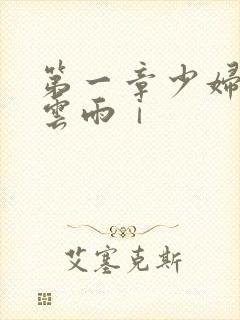 第一章少婦
雲雨 |
艾塞克斯